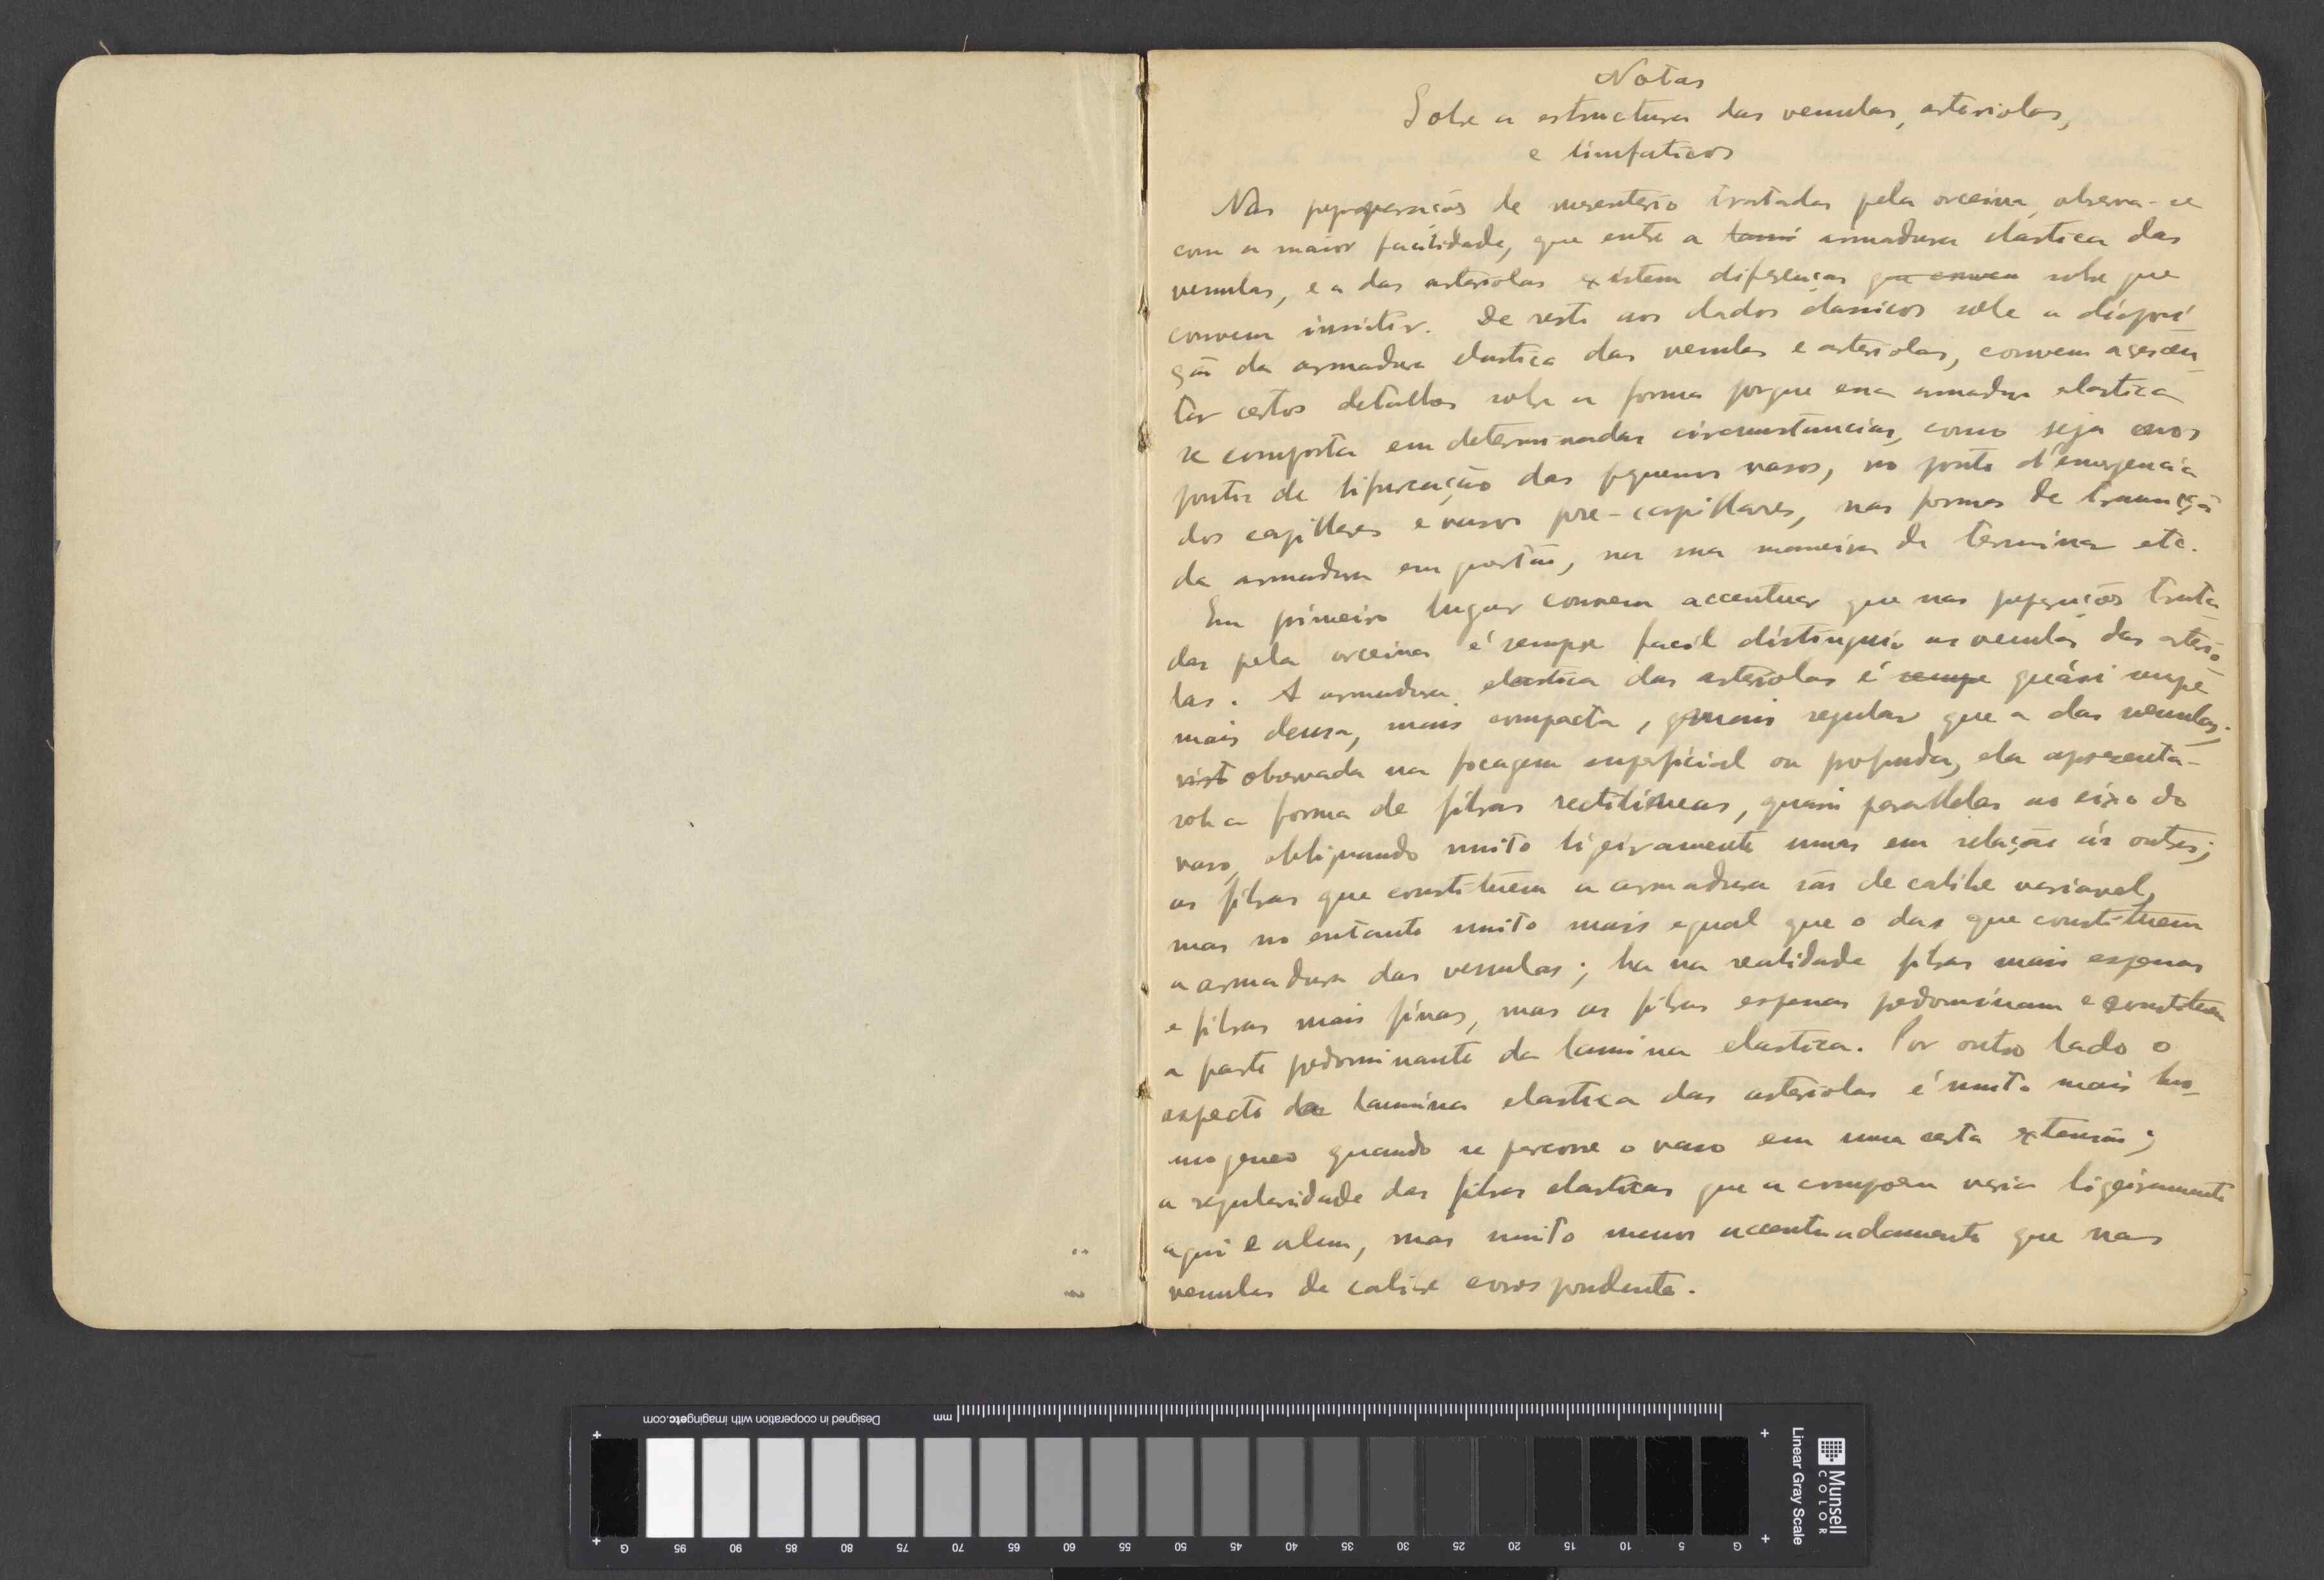 Notas
Sobre a estructura das venulas, arteriolas,
e linfaticos
Nas preparações de mesenterio tratadas pela orceina, observa-se
com a maior facilidade, que entre a lami armadura elastica das
venulas, e a das arteriolas existem diferenças que conven sobre que
convem insistir. De resto aos dados classicos sobre a disposi
ção da armadura elastica das venulas e arteriolas, convem acrescen
tar certos detalhes sobre a forma porque essa armadura elastica
se comporta em determinadas circumstancias, como seja nos
pontos de bifurcação dos pequenos vasos, no ponto d'emergencia
dos capillares e vasos pre-capillares, nas formas de transição
da armadura em questão, na sua maneira de terminar etc.
Em primeiro lugar convem accentuar que nas preparações trata
das pela orceina é sempre facil distinguir as venulas das arterio
las. A armadura elastica das arteriolas é sempre quási sempre
mais densa, mais compacta, mais regular que a das venulas;
vist observada na focagem superficial ou profunda, ela apresenta-
sob a forma de fibras rectilineas, quasi parallelas ao eixo do
vaso, obliquando muito ligeiramente umas em relação ás outras;
as fibras que constituem a armadura são de calibre variavel,
mas no entanto muito mais egual que o das que constituem
a armadura das venulas; ha na realidade fibras mais espessas
e fibras mais finas, mas as fibras espessas predominam e constituem
a parte predominante da lamina elastica. Por outro lado o
aspecto da lamina elastica das arteriolas é muito mais ho-
mogeneo quando se percorre o vaso em uma certa extensão;
a regularidade das fibras elasticas que a compoem varia ligeiramente
aqui e alem, mas muito menos accentuadamente que nas
venulas de calibre correspondente.
Designed in cooperation with imagingetc.com
mm
G 95 90 85 80 75 70 65 60 55 50 45 40 35 30 25 20 15 10 5 G
Linear Gray Scale
Munsell
COLOR